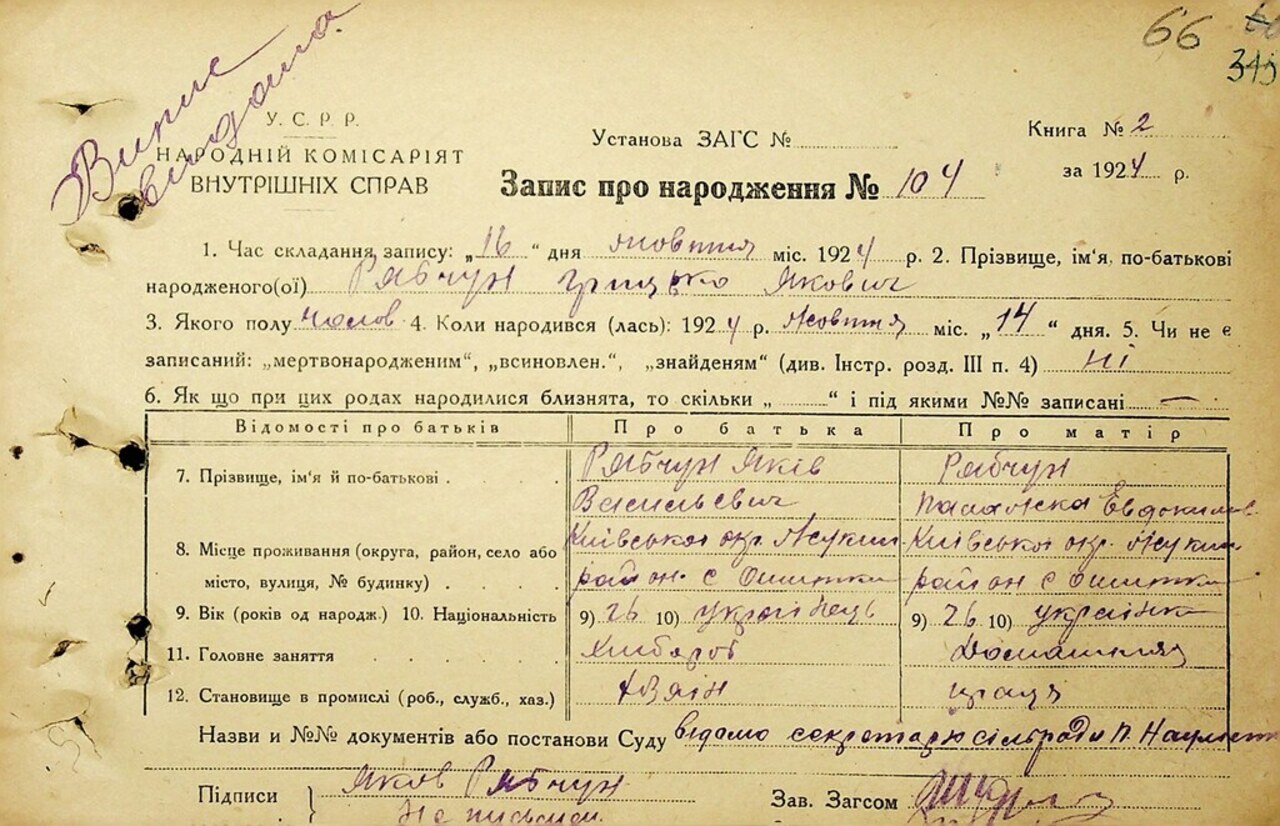 66
345
Випис
видано.
У. С. Р. Р.
НАРОДНІЙ КОМІСАРІЯТ
ВНУТРІШНІХ СПРАВ
Установа ЗАГС №
Книга № 2
за 1924 р.
Запис про народження № 104
1. Час складання запису: „16“ дня жовтня міс. 1924 р. 2. Прізвище, ім'я, по-батькові
народженого(ої) Рябчун Грицько Якович
3. Якого полу чолов 4. Коли народився (лась): 1924 р. жовтня міс. „14“ дня. 5. Чи не є
записаний: „мертвонародженим“, „всиновлен.“, „знайденям“ (див. Інстр. розд. III п. 4) ні
6. Як що при цих родах народилися близнята, то скільки „ “ і під якими №№ записані —
Відомості про батьків Про батька Про матір
7. Прізвище, ім'я й по-батькові Рябчун Яків Рябчун
Васильевич Палажка Евдокимов
8. Місце проживання (округа, район, село або Київської окр. Жукин Київської окр. Жукин
місто, вулиця, № будинку) район. с Ошитки район с Ошитки
9. Вік (років од народж.) 10. Національність 9) 26 10) українець 9) 26 10) українка
11. Головне заняття Хлібороб Домашняя
12. Становище в промислі (роб., служб., хаз.) хвяін праця
Назви и №№ документів або постанови Суду відамо секретарю сільради П.
Підписи } Яков Рябчун
Зав. Загсом
Не письмен.